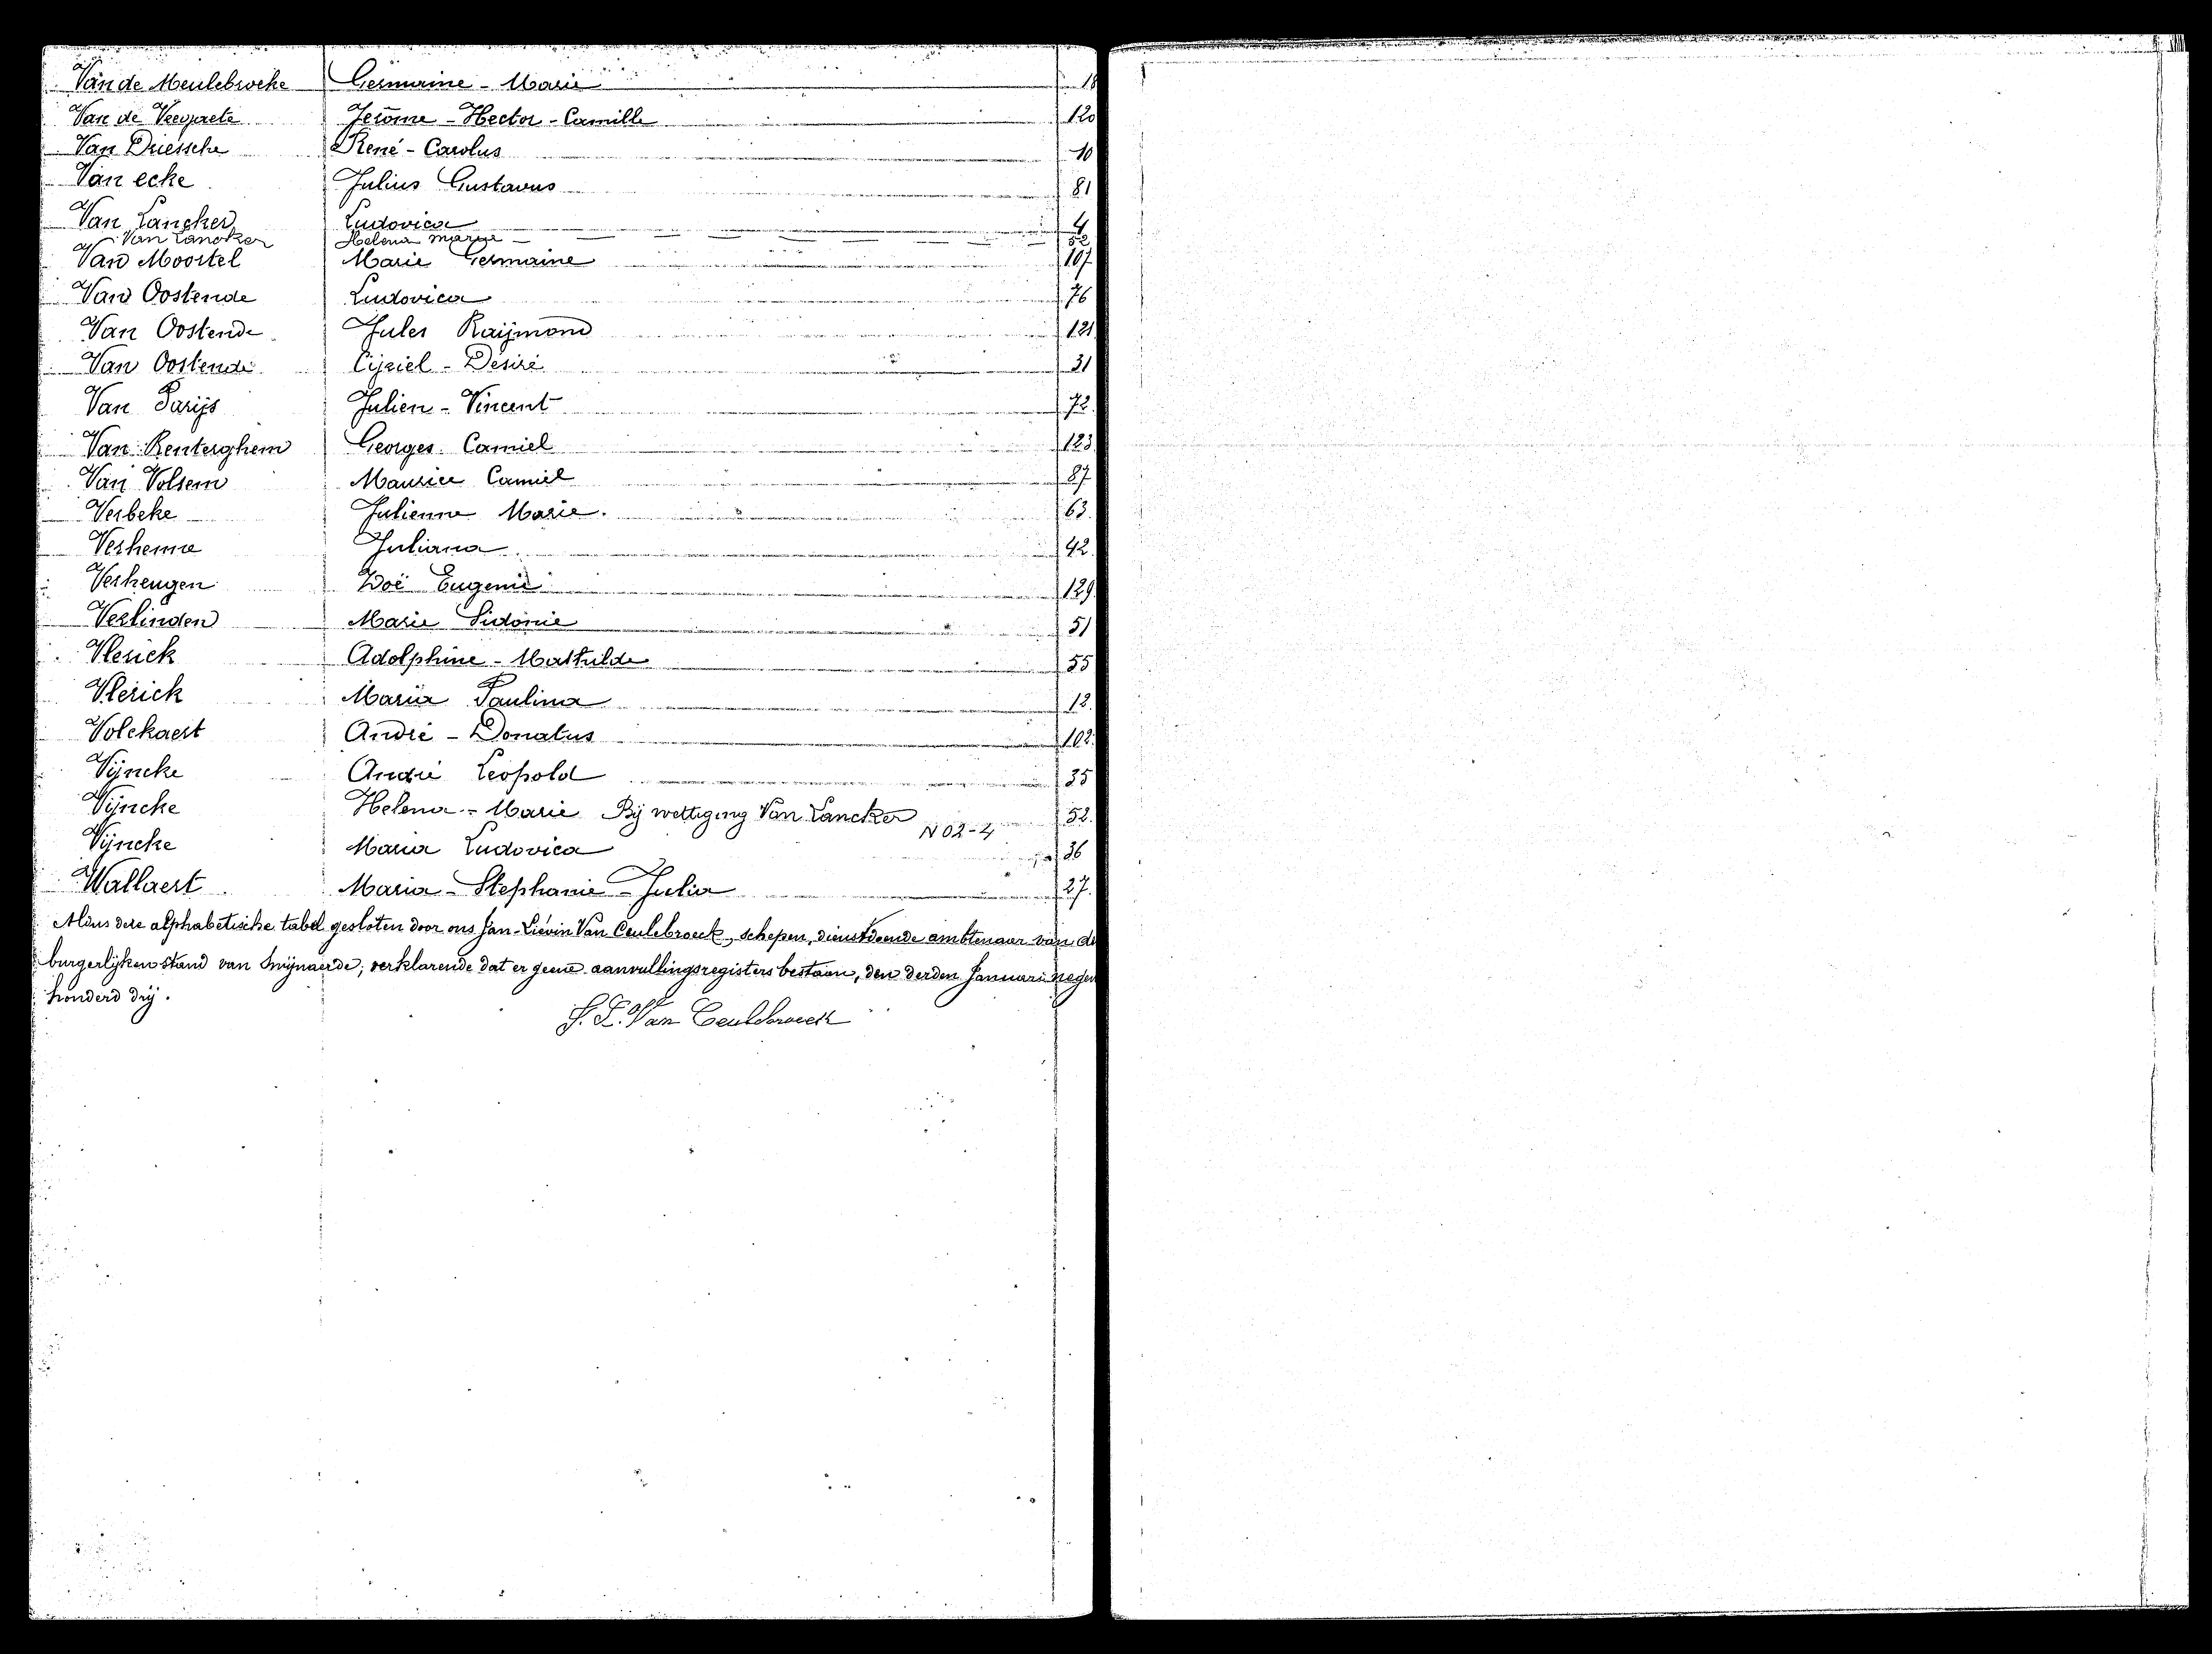 Van de Meulebroeke Germaine - Marie 18
Van de Veegaete Jerôme - Hector - Camille 120
Van Driessche René - Carolus 10
Van ecke Julius Gustavus 81
Van Lancker Ludovica 4
Van Lancker Helena Marie 52
Van Moortel Marie Germaine 107
Van Oostende Ludovica 76
Van Oostende Jules Raijmond 121
Van Oostende Cijriel - Désiré 31
Van Parijs Julien - Vincent 72
Van Renterghem Georges Camiel 123
Van Volsem Maurice Camiel 87
Verbeke Julienne Marie. 63
Verhenne Juliana 42
Verheugen Zoë Eugenie 129
Verlinden Marie Sidonie 51
Vlerick Adolphine - Mathilde 55
Vlerick Maria Paulina 12
Volckaert André - Donatus 102
Vijncke André Leopold 35
Vijncke Helena - Marie Bij wettiging Van Lancker 52
N 02-4
Vijncke Maria Ludovica 36
Wallaert Maria - Stephanie - Julia 27
Aldus deze alphabetische tabel gesloten door ons Jan-Liévin Van Ceulebroeck, schepen, dienstdoende ambtenaar van de
burgerlijken stand van Swijnaerde; verklarende dat er geene aanvullingsregisters bestaan, den derden Januari negen
honderd drij.
J. L. Van Ceulebroeck